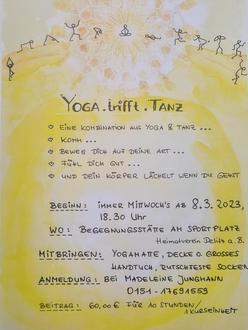 YOGA.trifft.TANZ
EINE KOMBINATION AUS YOGA & TANZ ...
KOMM ...
BEWEG DICH AUF DEINE ART ...
FÜHL DICH GUT ...
UND DEIN KÖRPER LÄCHELT WENN DU GEHST
BEGINN: IMMER MITTWOCH'S AB 8.3.2023,
18.30 Uhr
WO: BEGEGNUNGSSTÄTTE AM SPORTPLATZ
Heimatverein Delitz a. B.
MITBRINGEN: YOGAMATTE, DECKE O. GROSSES
HANDTUCH, RUTSCHFESTE SOCKEN
ANMELDUNG: BEI MADELEINE JUNGHANN
0151-17691559
BEITRAG: 60,00€ FÜR 10 STUNDEN/
1 KURSEINHEIT